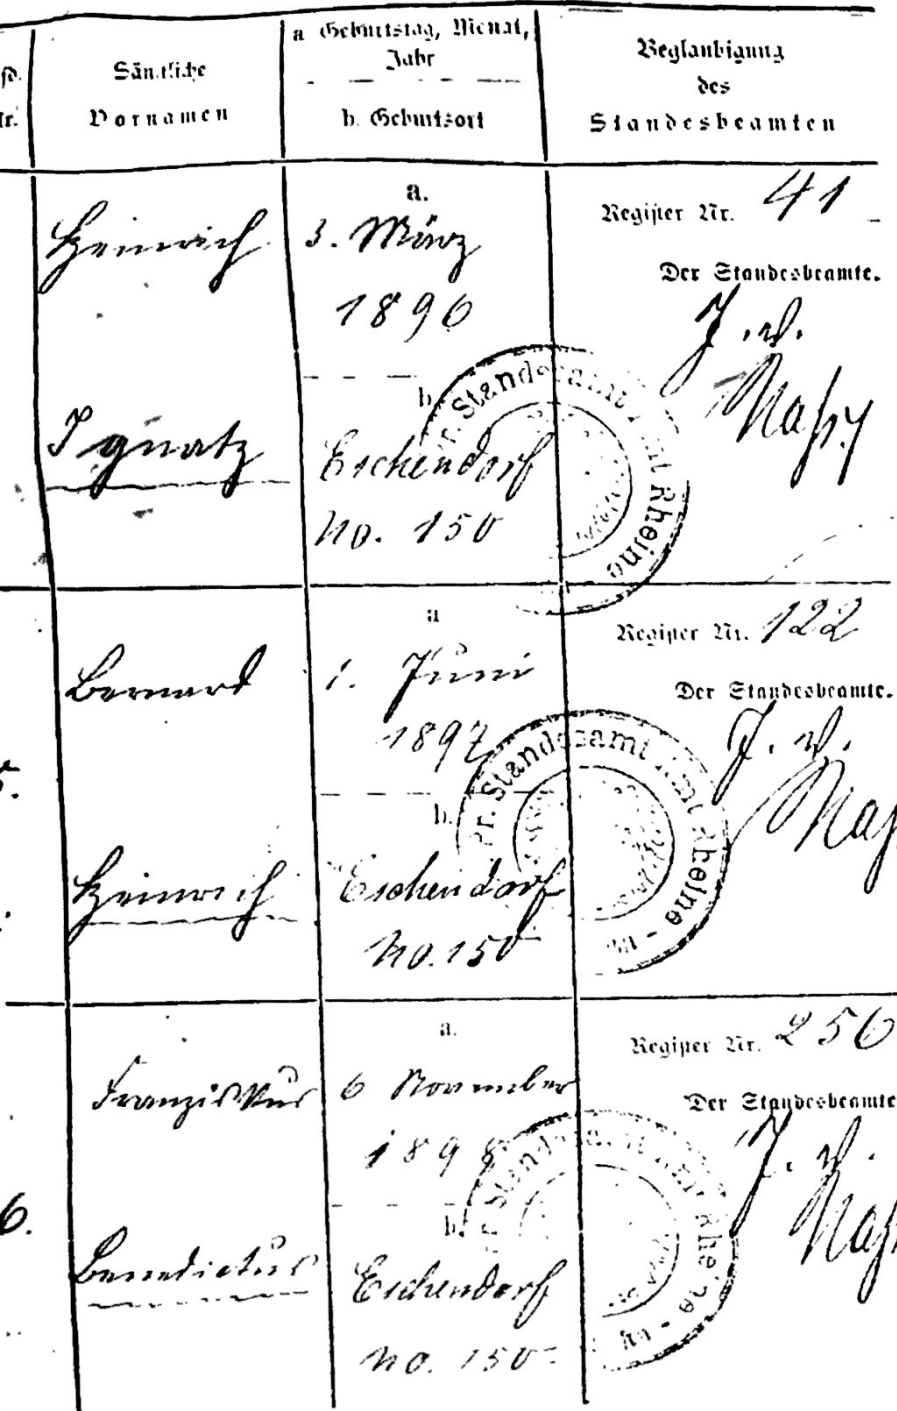 Sämtliche
Vornamen
a Geburtstag, Monat,
Jahr
b. Geburtsort
Beglaubigung
des
Standesbeamten
Heinrich
Ignatz
a.
3. März
1896
b.
Eschendorf
No. 150
Register Nr. 41
Der Standesbeamte.
J. V.
Pr. Standesamt Amt Rheine
5.
Bernard
Heinrich
a
1. Juni
1897
b.
Eschendorf
No. 150
Register Nr. 122
Der Standesbeamte.
J. V.
Pr. Standesamt Amt Rheine
6.
Franziskus
Benedictus
a.
6 November
1898
b.
Eschendorf
No. 150
Register Nr. 256
Der Standesbeamte
J. V.
Pr Standesamt Amt Rheine